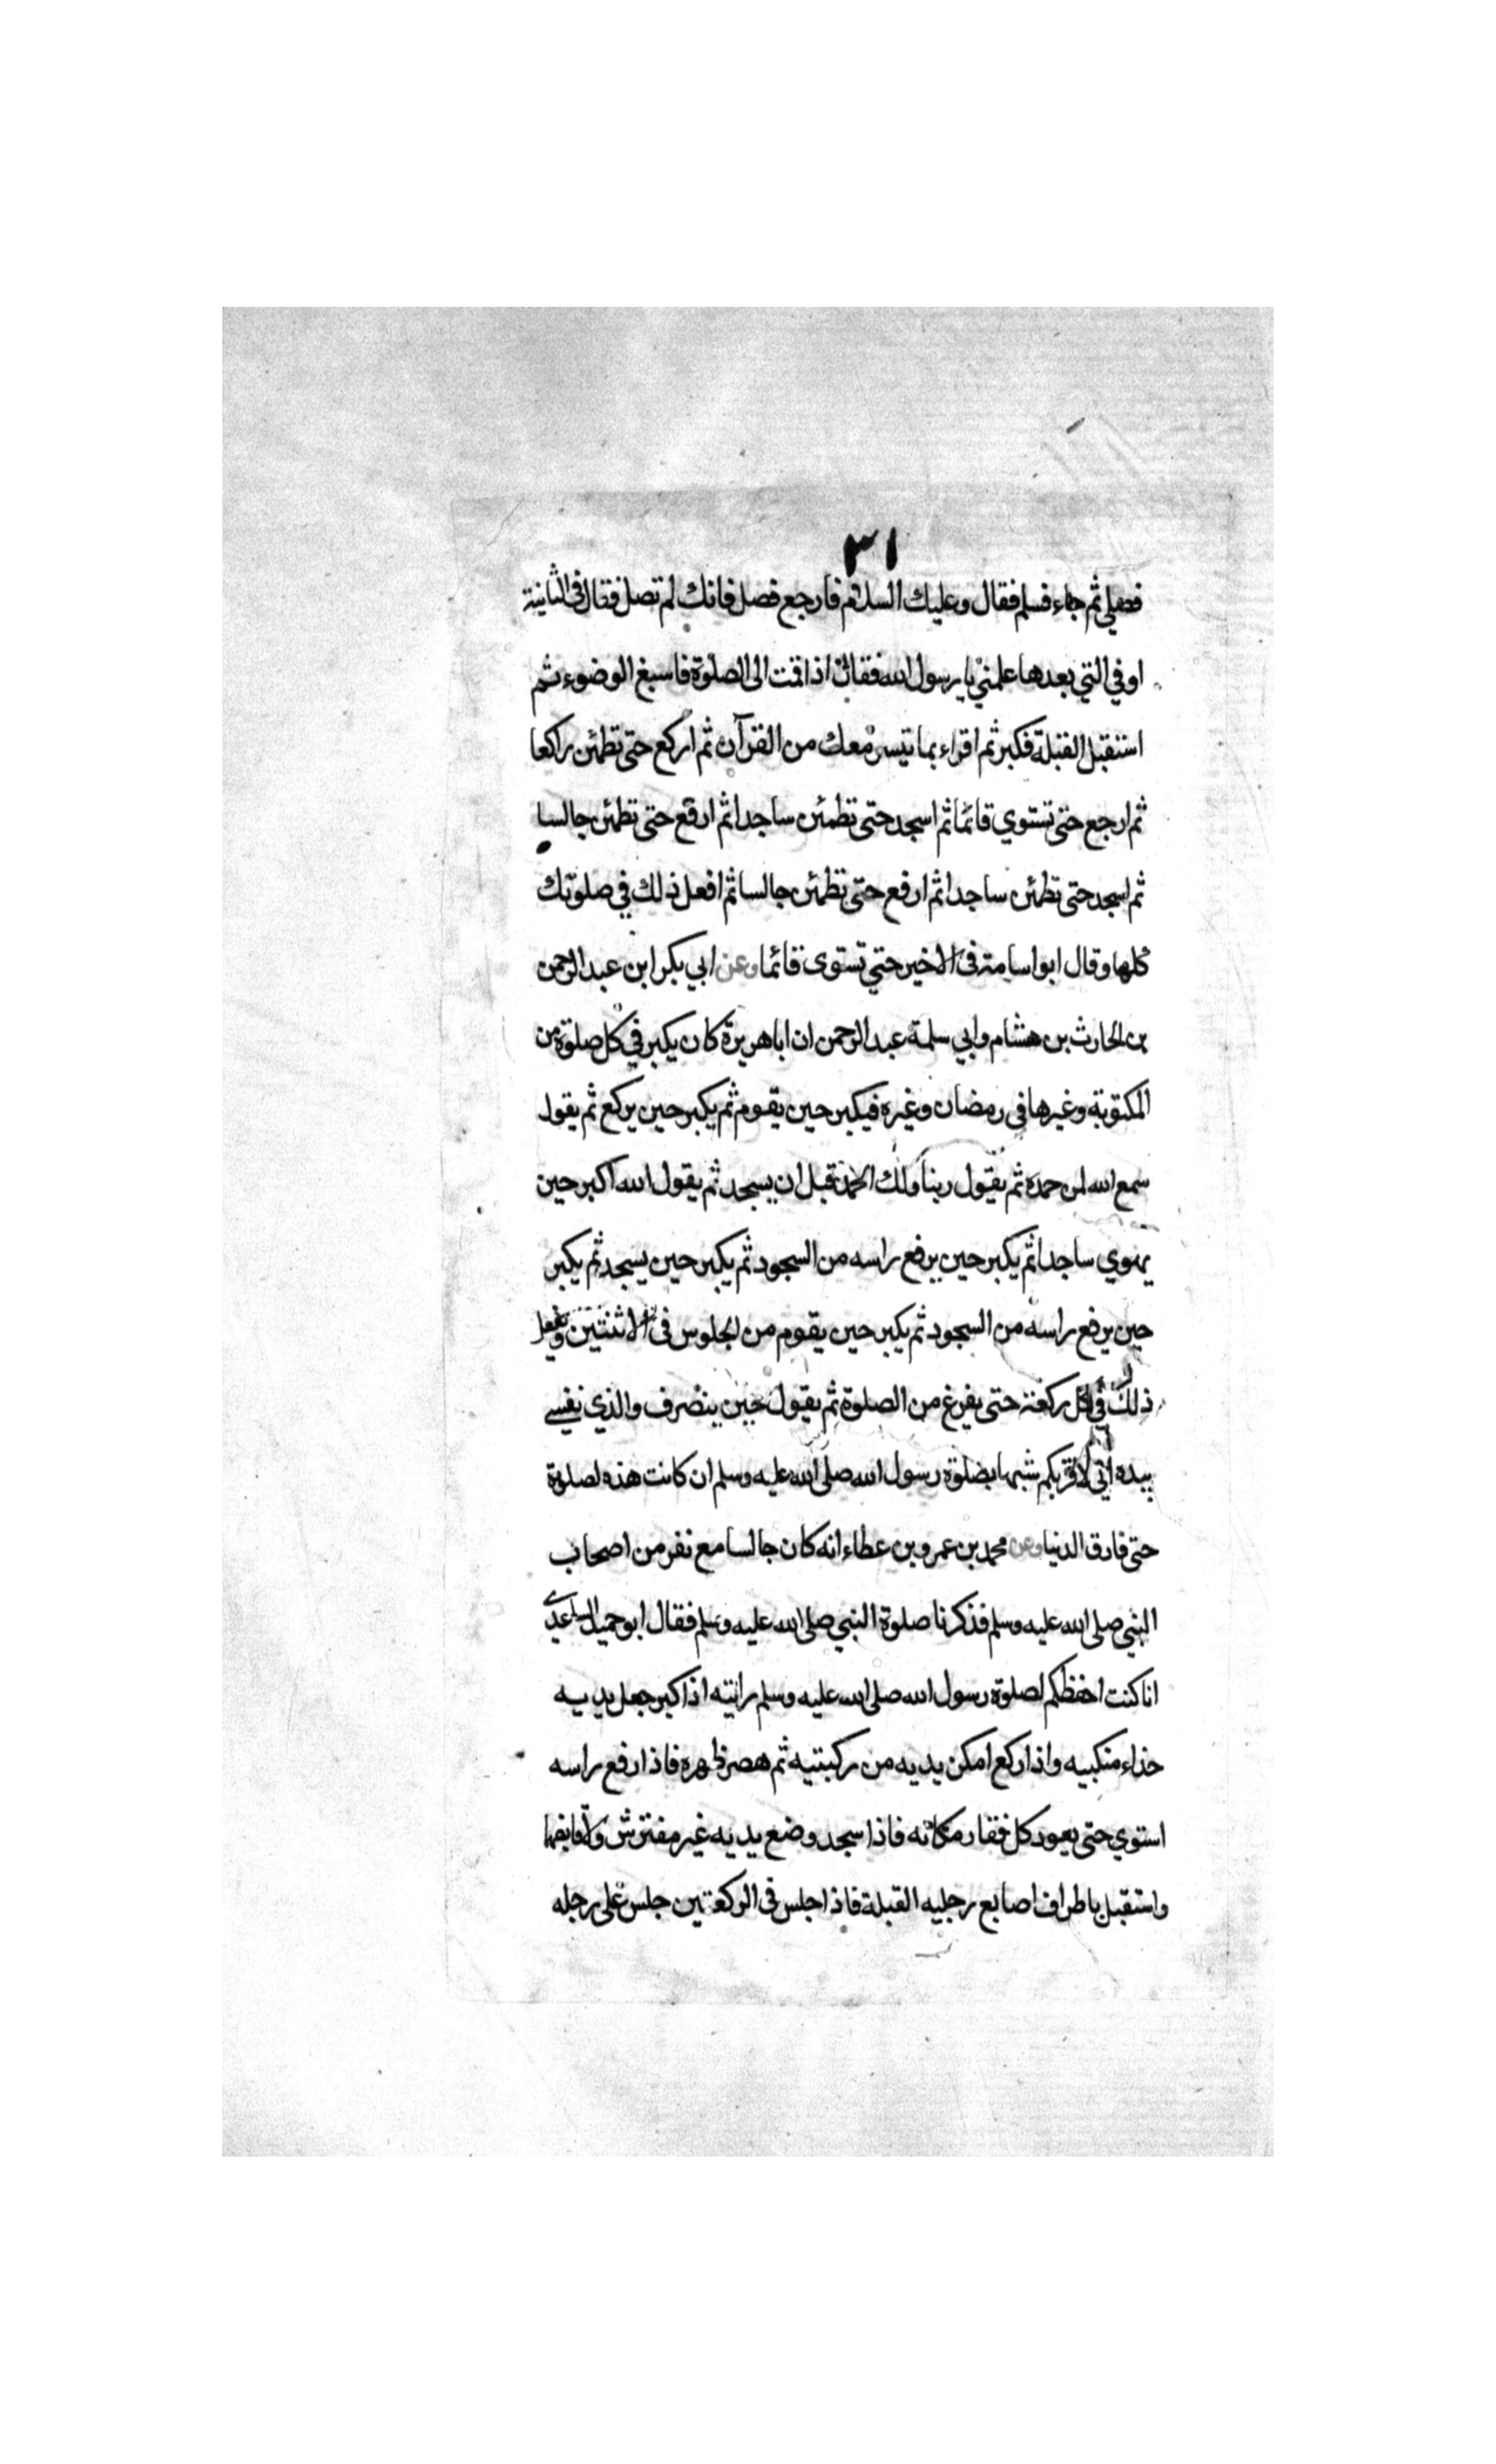 ٣١
فصلي ثم جاء فسلم فقال وعليك السلام فارجع فصل فانك لم تصل فقال في الثانية
او في التي بعدها علمني يا رسول الله فقال اذا قمت الى الصلوة فاسبغ الوضوء ثم
استقبل القبلة فكبر ثم اقراء بما تيسر معك من القرآن ثم اركع حتى تطمئن راكعا
ثم ارجع حتى تستوي قائما ثم اسجد حتى تطمئن ساجدا ثم ارفع حتى تطمئن جالسا
ثم اسجد حتى تطمئن ساجدا ثم ارفع حتى تطمئن جالسا ثم افعل ذلك في صلوتك
كلها وقال ابو اسامة في الاخير حتي تستوى قائما وعن ابي بكر ابن عبد الرحمن
بن الحارث بن هشام وابي سلمة عبد الرحمن ان ابا هريرة كان يكبر في كل صلوة من
المكتوبة وغيرها في رمضان وغيره فيكبر حين يقوم ثم يكبر حين يركع ثم يقول
سمع الله لمن حمده ثم يقول ربنا ولك الحمد قبل ان يسجد ثم يقول الله اكبر حين
يهوي ساجدا ثم يكبر حين يرفع راسه من السجود ثم يكبر حين يسجد ثم يكبر
حين يرفع راسه من السجود ثم يكبر حين يقوم من الجلوس في الاثنتين ويفعل
ذلك في كل ركعة حتى يفرغ من الصلوة ثم يقول حين ينصرف والذي نفسي
بيده اني لاقربكم شبها بصلوة رسول الله صلى الله عليه وسلم ان كانت هذه لصلوة
حتى فارق الدنيا وعن محمد بن عمرو بن عطاء انه كان جالسا مع نفر من اصحاب
النبي صلى الله عليه وسلم فذكرنا صلوة النبي صلى الله عليه وسلم فقال ابو حميد الساعدي
انا كنت احفظكم لصلوة رسول الله صلى الله عليه وسلم رايته اذا كبر جعل يديه
حذاء منكبيه واذا ركع امكن يديه من ركبتيه ثم هصر ظهره فاذا رفع راسه
استوي حتى يعود كل فقار مكانه فاذا سجد وضع يديه غير مفترش ولا قابضها
واستقبل باطراف اصابع رجليه القبلة فاذا جلس في الركعتين جلس على رجله